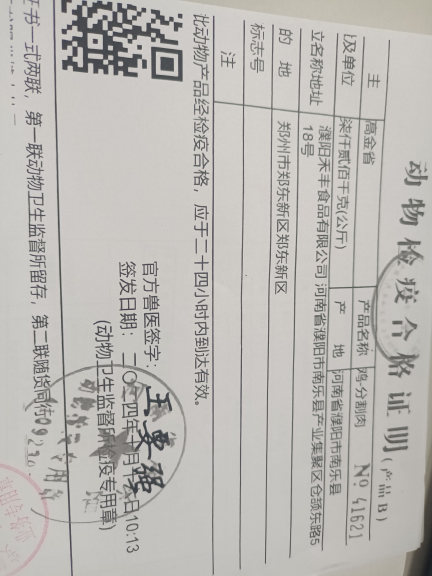 动物检疫合格证明(产品B)
№ 41621
主 高金省 产品名称 鸡-分割肉
及单位 柒仟贰佰千克(公斤) 产 地 河南省濮阳市南乐县
立名称地址 濮阳禾丰食品有限公司 河南省濮阳市南乐县产业集聚区仓颉东路5
18号
的 地 郑州市郑东新区郑东新区
标志号
注
此动物产品经检疫合格,应于二十四小时内到达有效。
官方兽医签字:
签发日期: 二〇二四年十月 日10:13
(动物卫生监督所检疫专用章)
证书一式两联,第一联动物卫生监督所留存,第二联随货同行